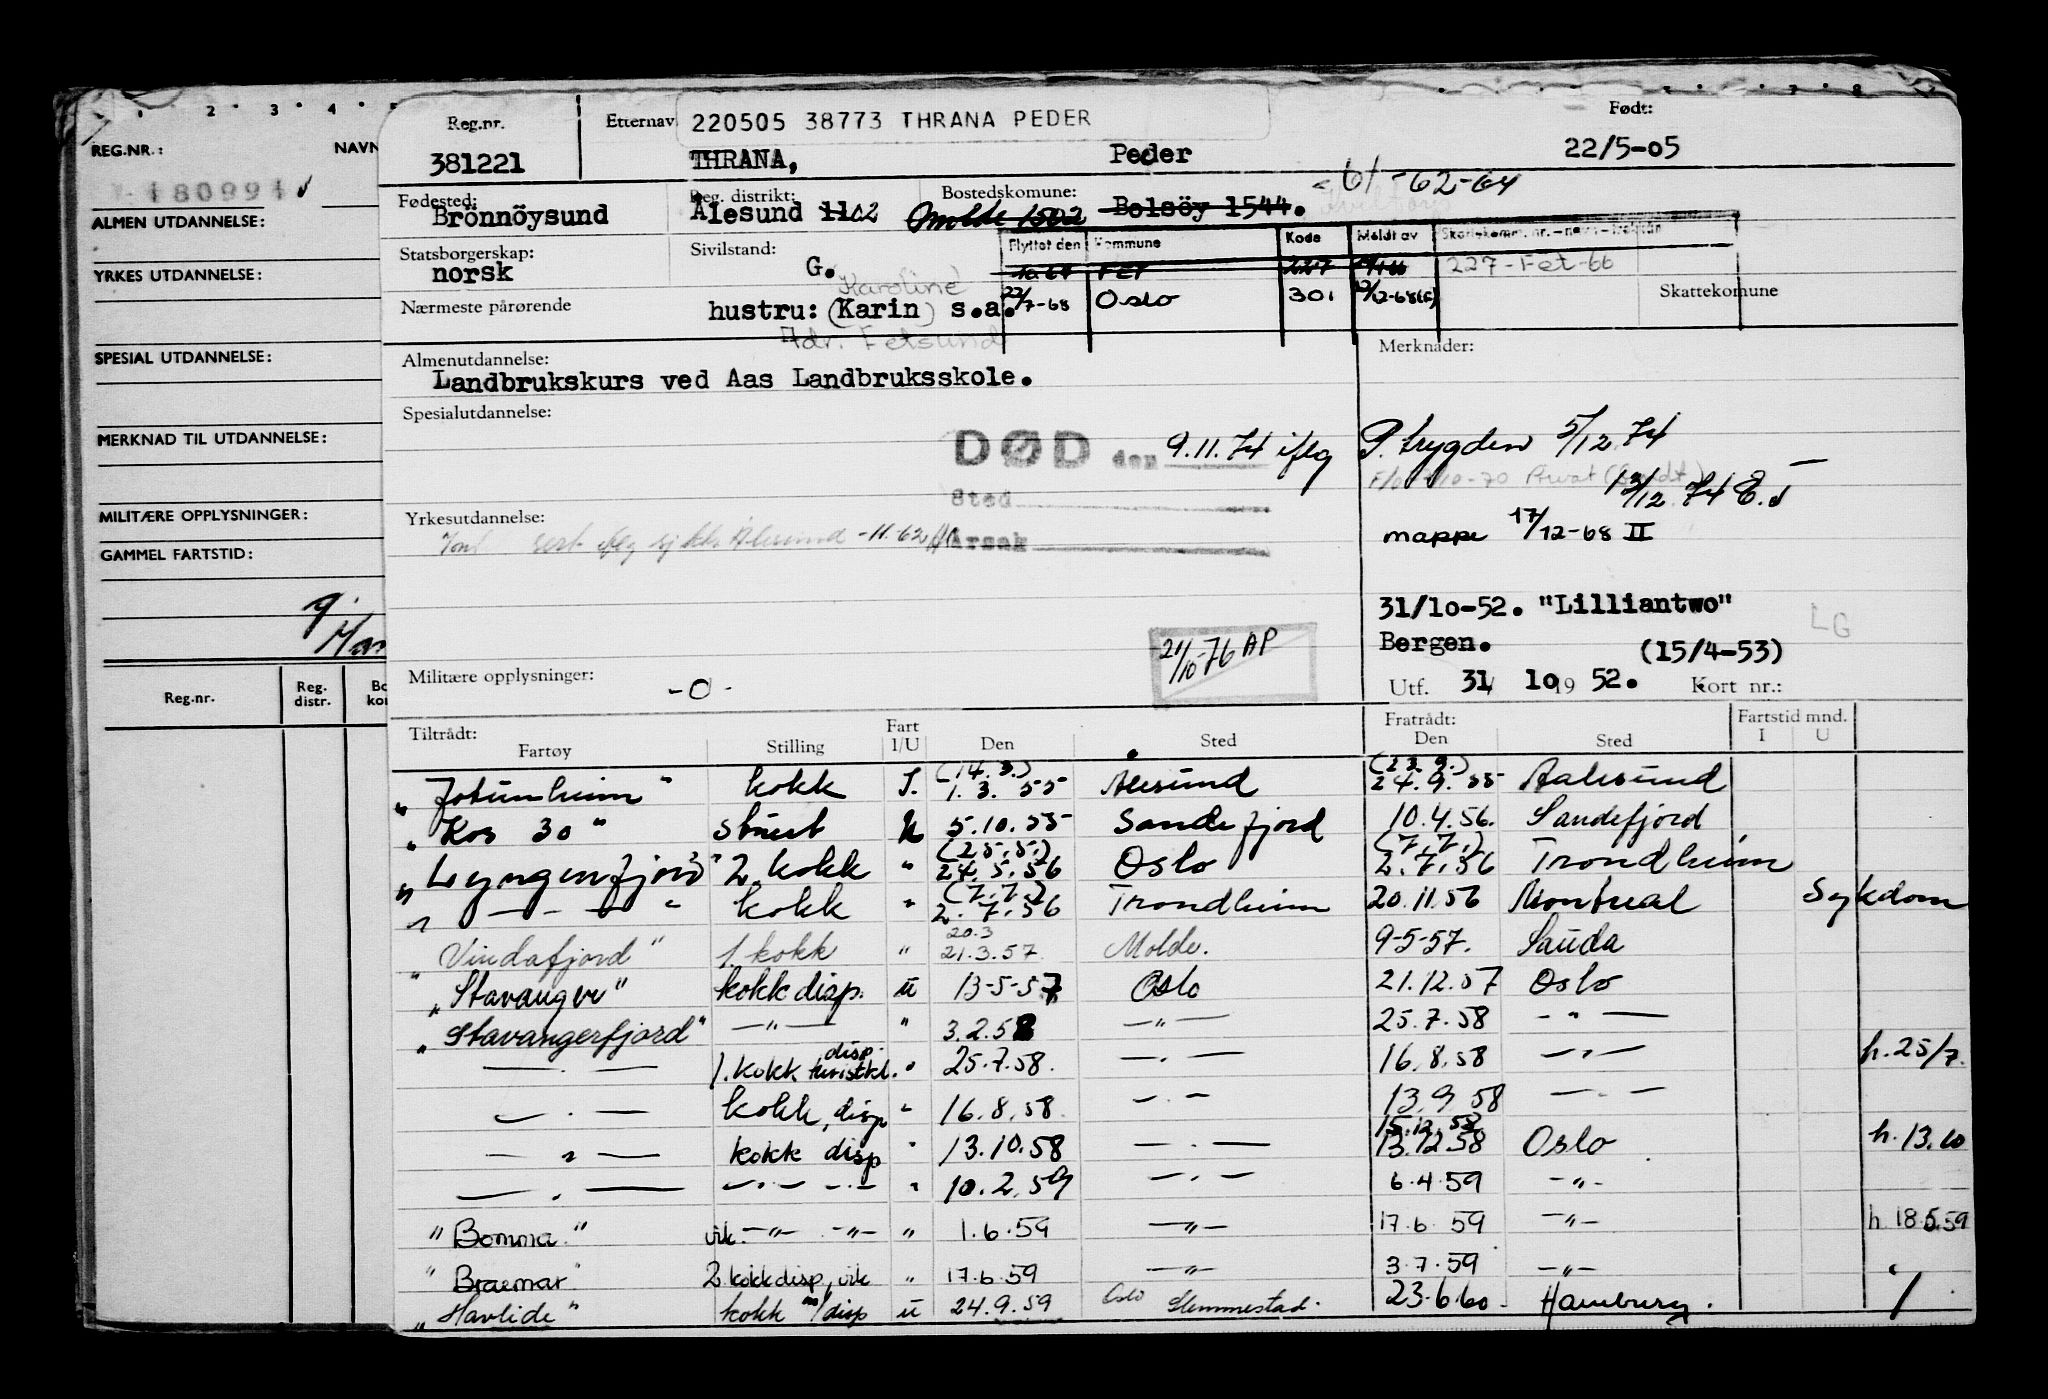 2 · 3 · 4
REG.NR.: NAVN
180991
ALMEN UTDANNELSE:
YRKES UTDANNELSE:
SPESIAL UTDANNELSE:
MERKNAD TIL UTDANNELSE:
MILITÆRE OPPLYSNINGER:
GAMMEL FARTSTID:
Reg.nr. Reg. distr. Bo ko
Reg.nr. Etternav 220505 38773 THRANA PEDER Født:
381221 THRANA, Peder 22/5-05
Fødested: Reg. distrikt: Bostedskomune: 61-62-64
Brönnöysund Ålesund 1102 Molde 1502 Bolsöy 1544.
Statsborgerskap: Sivilstand: Flyttet den Kommune Kode Meldt av
norsk G. FET 227 227-Fet-66
Karoline
Nærmeste pårørende hustru: (Karin) s.a. 22/7-68 Oslo 301 12/12-68 Skattekomune
Adr. Fetsund
Almenutdannelse: Merknader:
Landbrukskurs ved Aas Landbruksskole.
Spesialutdannelse:
DØD den 9.11.74 iflg P.trygden 5/12 74
13/12 74
Sted
Yrkesutdannelse: mappe 17/12-68 II
Årsak
31/10-52. "Lilliantwo" LG
21/10-76 AP Bergen. (15/4-53)
Militære opplysninger: -0- Utf. 31/ 10 19 52. Kort nr.:
Tiltrådt: Fart Fratrådt: Fartstid mnd.
Fartøy Stilling I/U Den Sted Den Sted I U
"Jotunheim" kokk I. (14.3.) 1.3.55 Alesund (23.9.) 24.9.55 Aalesund
"Kos 30" stuert U 5.10.55 Sandefjord 10.4.56. Sandefjord
"Lyngenfjord" 2. kokk " (25.5.) 24.5.56 Oslo (7.7.) 2.7.56 Trondheim
" — - — " kokk " (7.7.) 2.7.56 Trondheim 20.11.56 Montreal Sykdom
"Vindafjord" 1. kokk " 20.3 21.3.57 Molde. 9-5-57. Sauda
"Stavanger" kokk disp. U 13-5-57 Oslo 21.12.57 Oslo
"Stavangerfjord" —"— " 3.2.58 —"— 25.7.58 —"—
—"— 1. kokk disp. turistkl. " 25.7.58. —"— 16.8.58 —"— h.25/7.
—"— kokk, disp " 16.8.58. —"— 13.9.58 —"—
—"— kokk disp " 13.10.58 —"— 15.12.58 13.12.58 Oslo h.13.10
—"— —"— —"— " 10.2.59 —"— 6.4.59 —"—
"Bomma" vik. —"— —"— " 1.6.59 —"— 17.6.59 —"— h.18.5.59
"Braemar" 2 kokk disp, vik " 17.6.59 —"— 3.7.59 —"—
"Havlide" kokk m/disp U 24.9.59 Oslo Slemmestad. 23.6.60. Hamburg.